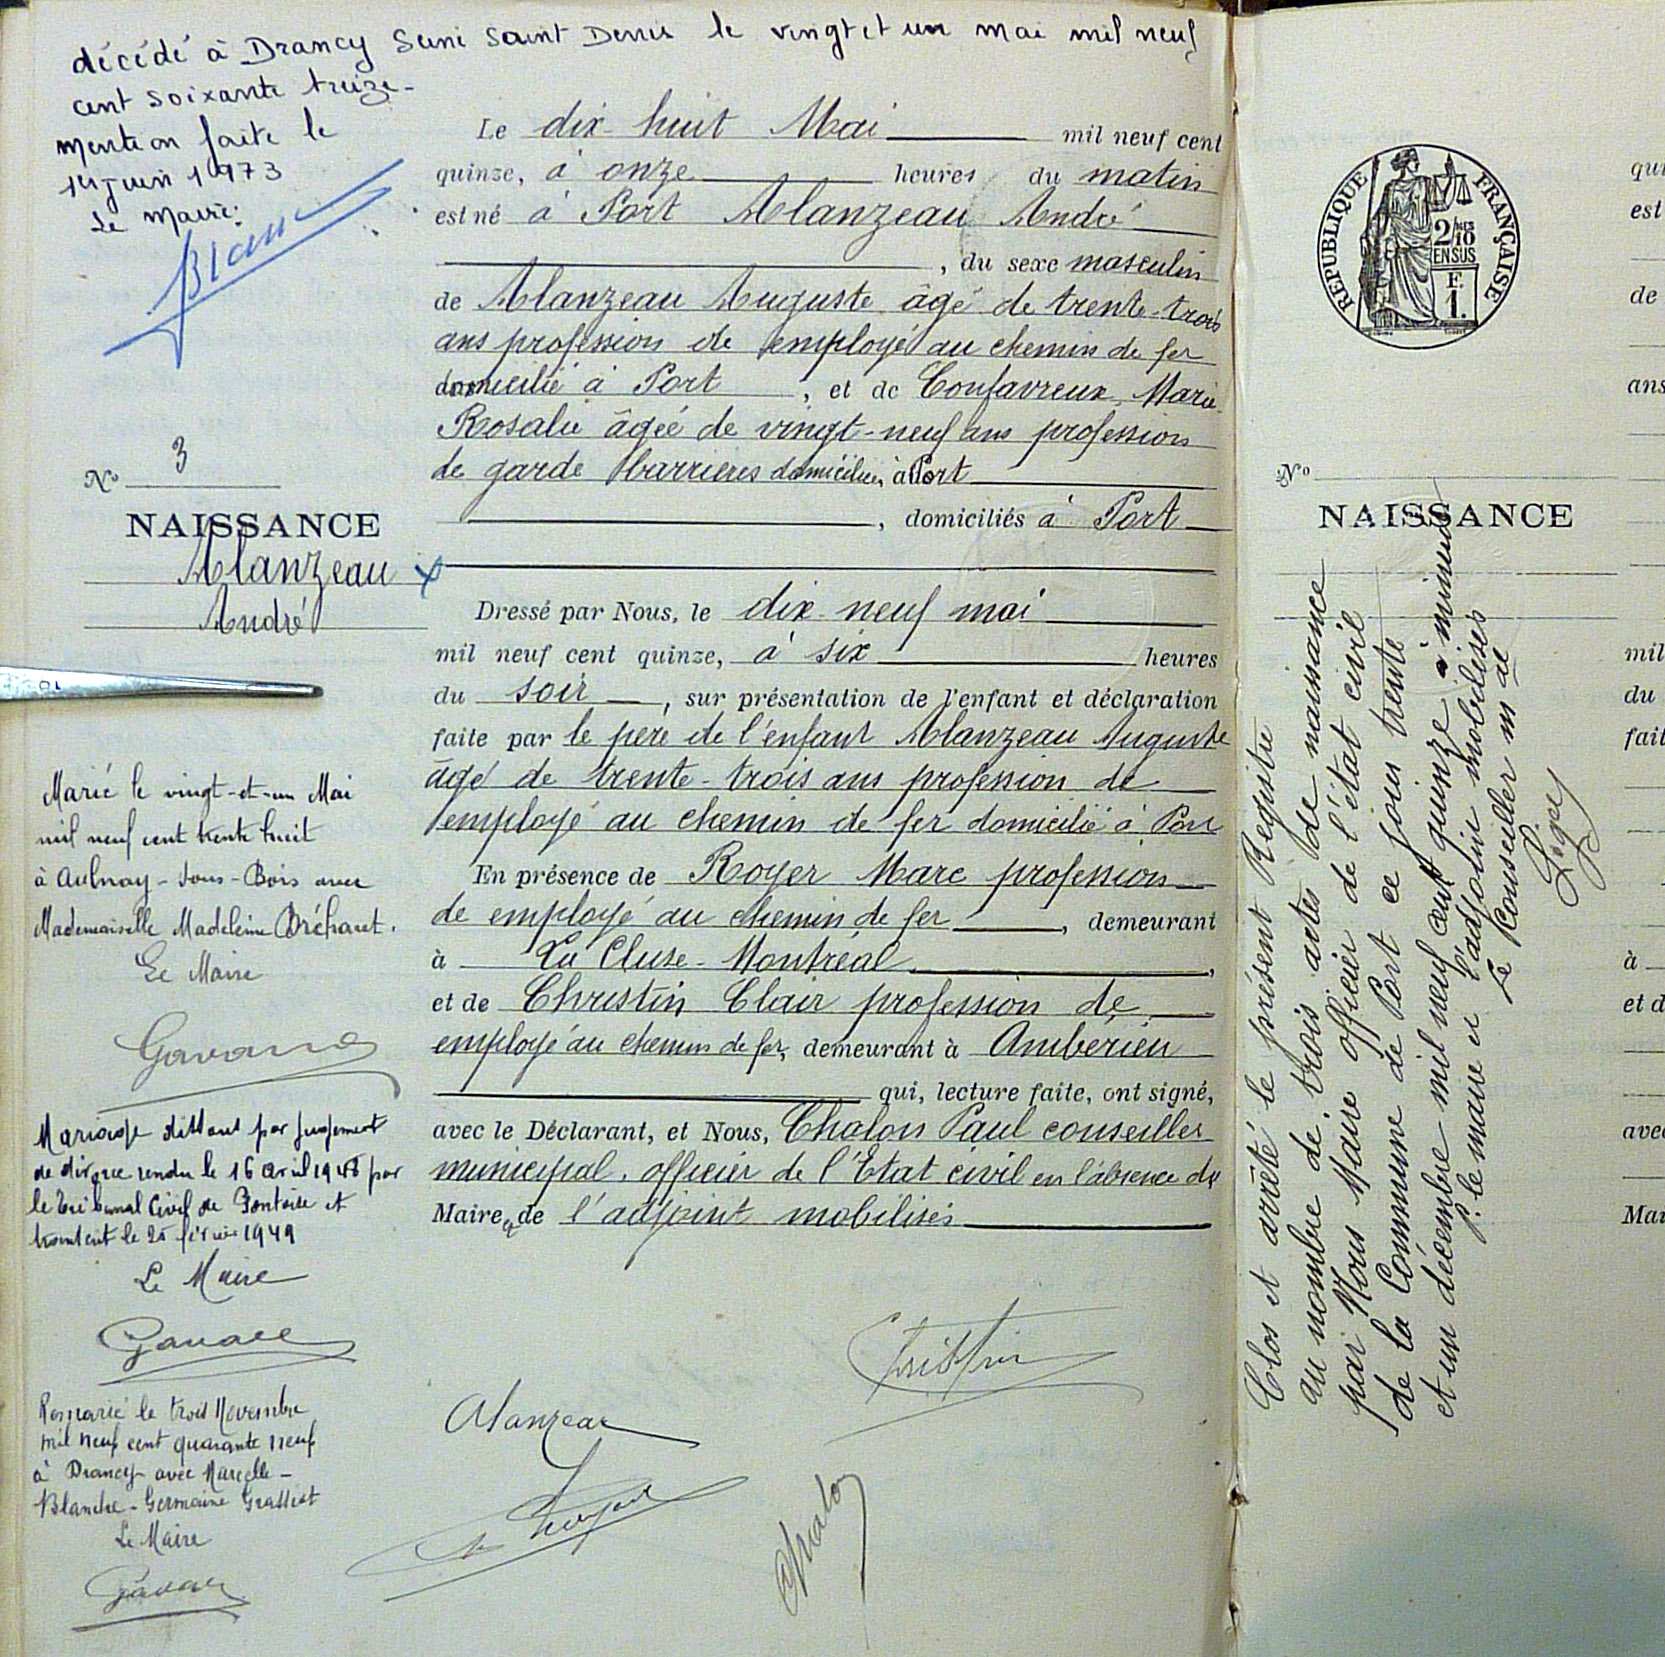 décédé à Drancy Seine Saint Denis le vingt et un mai mil neuf
cent soixante treize-
mention faite le
1er juin 1973
Le Maire:
Nº 3
NAISSANCE
Alanzeau
André
Marié le vingt-et-un Mai
mil neuf cent trente huit
à Aulnay-sous-Bois avec
Mademoiselle Madeleine Bréharet.
Le Maire
Mariage dissous par jugement
de divorce rendu le 16 avril 1948 par
le Tribunal Civil de Pontoise et
transcrit le 25 février 1949
Le Maire
Remarié le trois Novembre
mil neuf cent quarante neuf
à Drancy avec Marcelle-
Blanche-Germaine
Le Maire
Le dix-huit Mai mil neuf cent
quinze, à onze heures du matin
est né à Port Alanzeau André
, du sexe masculin
de Alanzeau Auguste âgé de trente-trois
ans profession de employé au chemin de fer
domicilié à Port, et de Confavreux, Marie-
Rosalie âgée de vingt-neuf ans profession
de garde barrières domiciliée à Port
, domiciliés à Port
Dressé par Nous, le dix-neuf mai
mil neuf cent quinze, à six heures
du soir, sur présentation de l'enfant et déclaration
faite par le père de l'enfant Alanzeau Auguste
âgé de trente-trois ans profession de
employé au chemin de fer domicilié à Port
En présence de Royer Marc profession
de employé au chemin de fer, demeurant
à La Cluse-Montréal,
et de Christin Clair profession de
employé au chemin de fer, demeurant à Ambérieu
qui, lecture faite, ont signé,
avec le Déclarant, et Nous, Chalon Paul conseiller
municipal, officier de l'Etat civil en l'absence du
Maire & de l'adjoint mobilisés
Christin
Alanzeau
Royer
Chalon
RÉPUBLIQUE FRANÇAISE
2/10
EN SUS
F.
1.
Nº
NAISSANCE
Clos et arrêté le présent Registre
au nombre de trois actes de naissance
par Nous Maire officier de l'état civil
de la Commune de Port ce jour trente
et un décembre mil neuf cent quinze à minuit
P. le maire et l'adjoint mobilisés
Le Conseiller m al
qui
est
de
ans
mil
du
fait
à
et d
avec
Mai